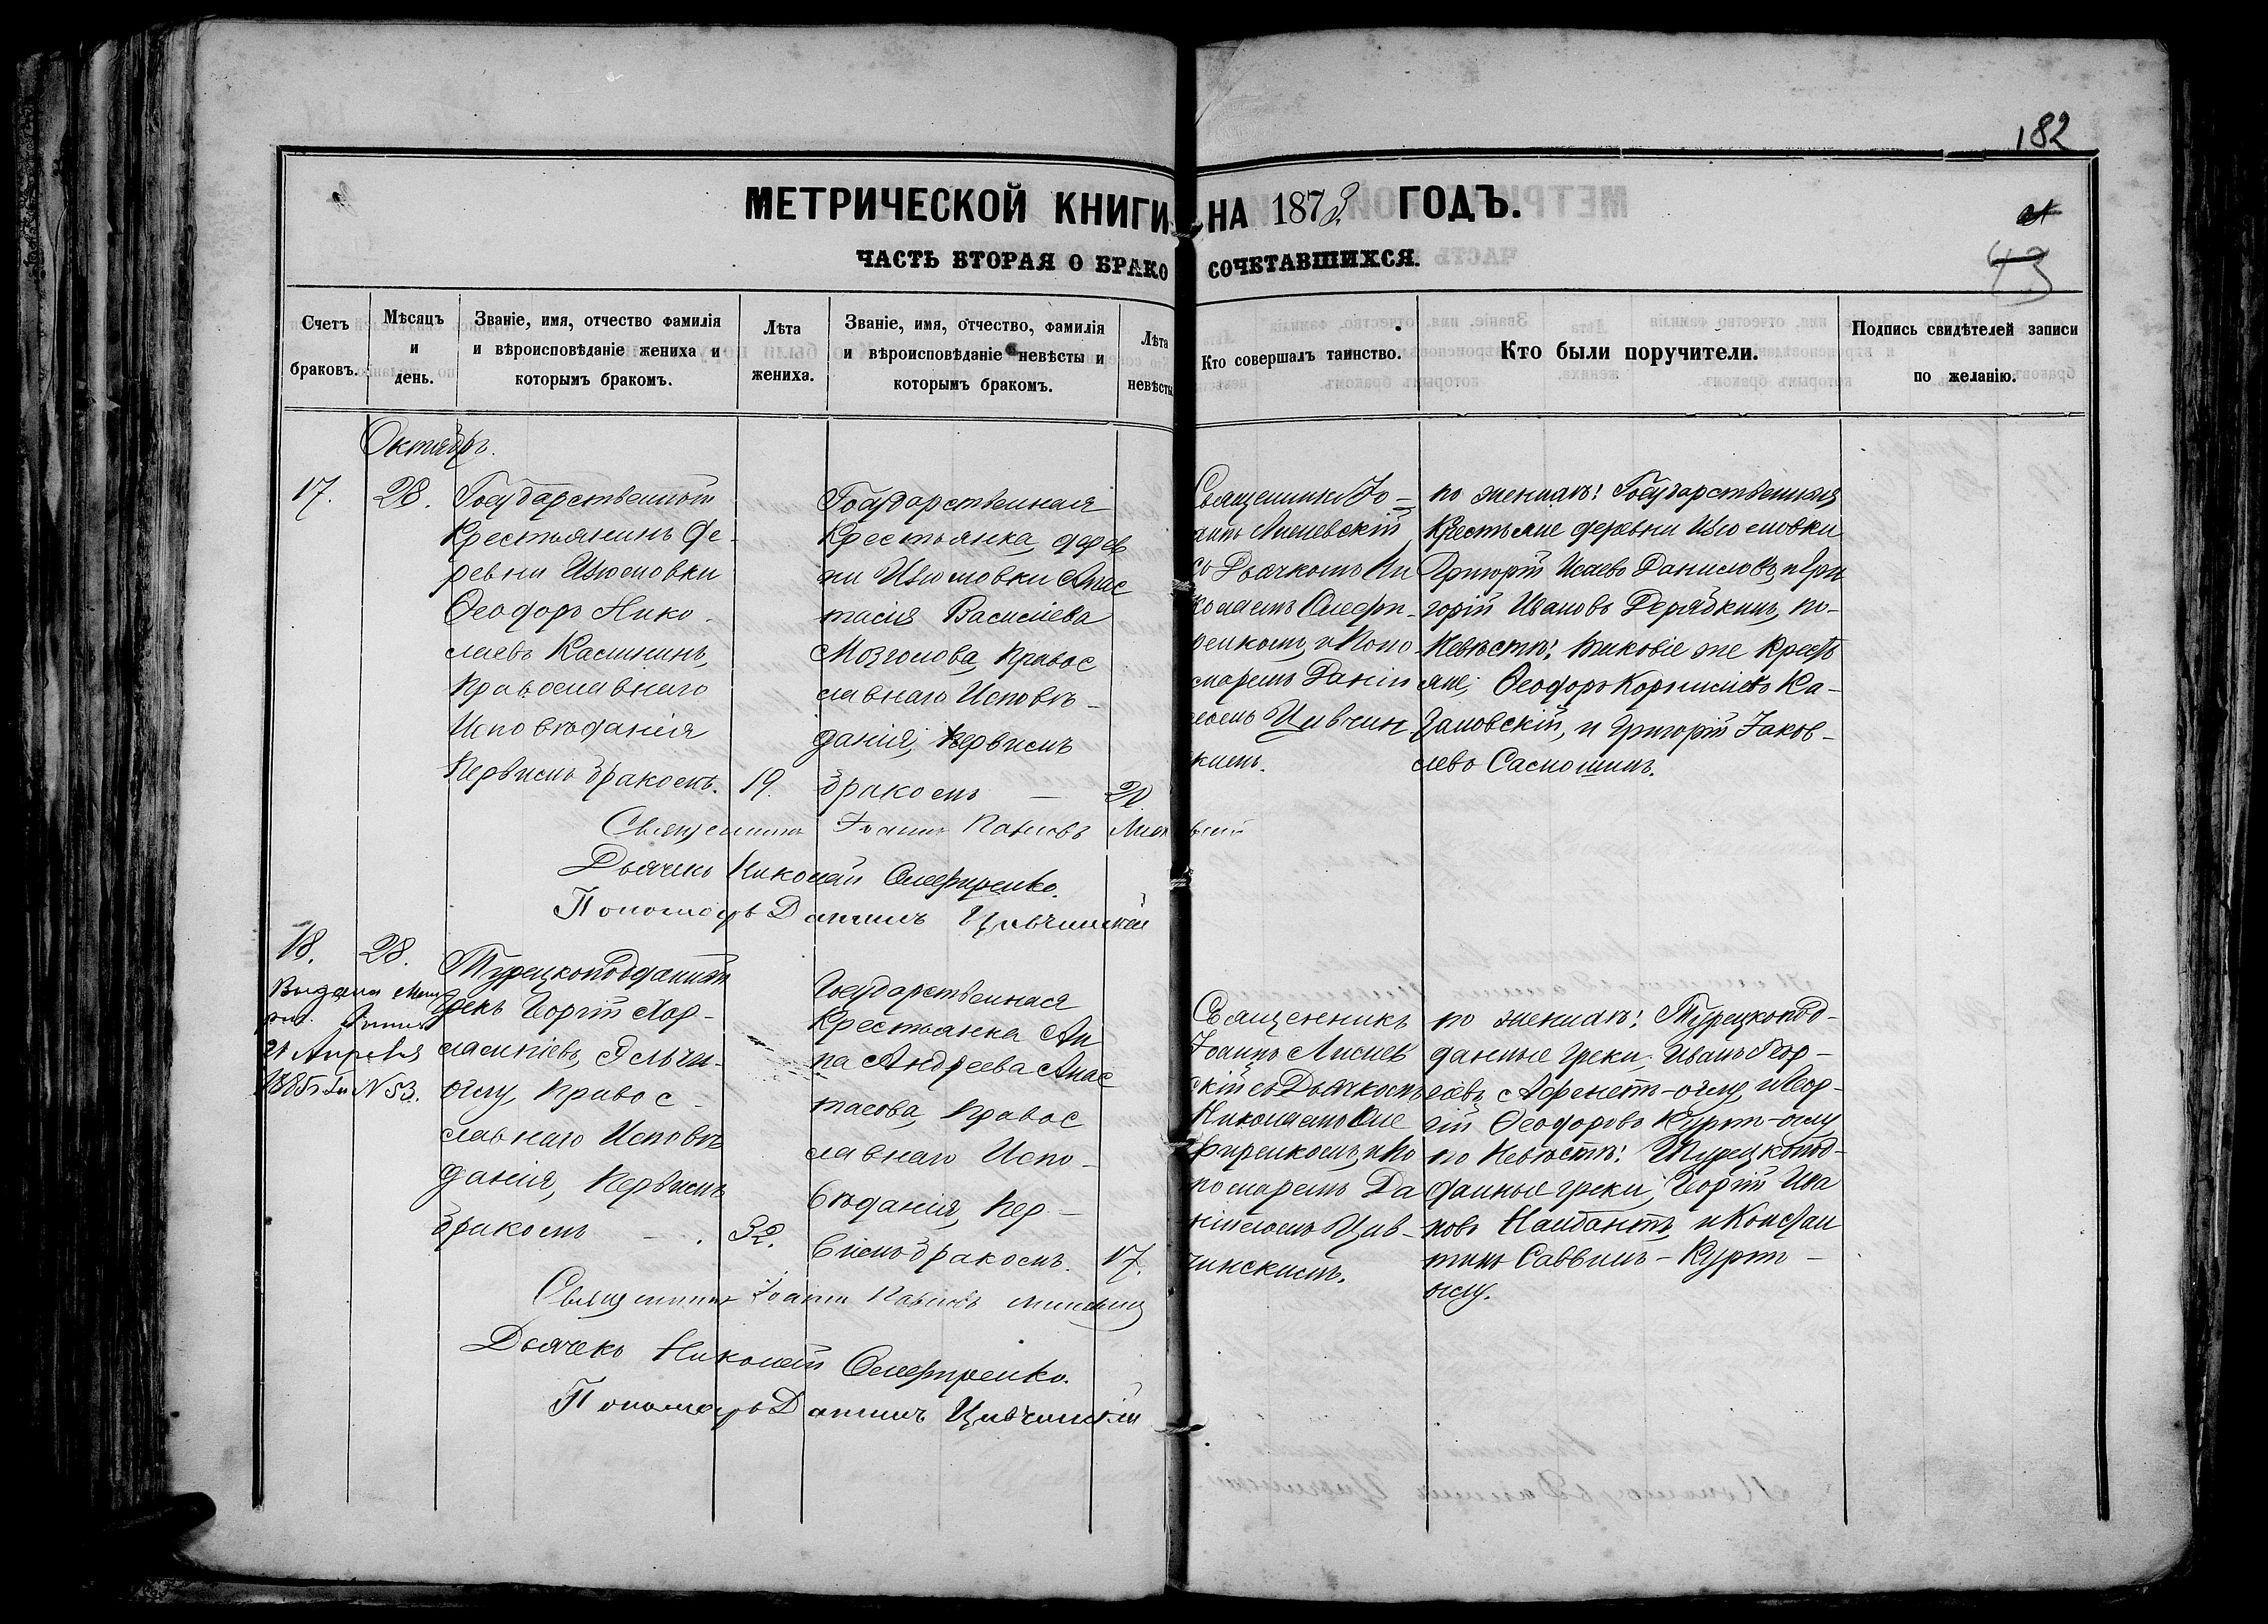 182
МЕТРИЧЕСКОЙ КНИГИ НА 1873 ГОДЪ.
ЧАСТЬ ВТОРАЯ О БРАКО СОЧЕТАВШИХСЯ.
43
Счетъ браковъ.
Мѣсяцъ и день.
Званіе, имя, отчество фамилія
и вѣроисповѣданіе жениха и
которымъ бракомъ.
Лѣта
жениха.
Званіе, имя, отчество, фамилія
и вѣроисповѣданіе невѣсты и
которымъ бракомъ.
Лѣта
невѣсты
Кто совершалъ таинство.
Кто были поручители.
Подпись свидѣтелей записи
по желанію.
Октябрь.
17.
28.
Государственной
Крестьянинъ Де-
ревни
Ѳеодоръ Нико-
лаевъ Калининъ,
Православнаго
Исповѣданія
Первымъ бракомъ.
19.
Государственная
Крестьянка, дерев
ни Анас
тасія Василіева
Мозголова, Правос
лавнаго Исповѣ-
данія, Первымъ
бракомъ —
21.
Священникъ Іо-
аннъ Лисиевскій
съ Дьячкомъ Ни
колаемъ Олефи-
ренкомъ, и Поно-
маремъ Даніи
ломъ Цивчин
кимъ.
по женихѣ: Государственныя
Крестьяне деревни
Григорій Исаевъ Даниловъ, и Гри
горій Ивановъ Дерябкинъ, по-
Невѣстѣ: таковіе же Крестъ
яне; Ѳеодоръ Корниліевъ Ка-
зановскій, и Григорій Іаков-
левъ
Священникъ Іоаннъ Павловъ
Дьячекъ Николай Олефиренко.
Пономарь Даніилъ Цивчинскій
18.
28.
Выдана
21 Апреля
1885 г. за N 53.
Турецкоподданный
грекъ Георгій
оглу, Правос-
лавнаго Исповѣ
данія, Первымъ
бракомъ — .
32.
Государственная
Крестьянка Ан
на Андреева Анас
тасова, Правос
лавнаго Испо-
вѣданія, Пер-
вымъ бракомъ.
17.
Священникъ
Іоаннъ Лисиев
скій съ Дьячкомъ
Николаемъ Оле
фиренкомъ, и По
номаремъ Да
ніиломъ Цив-
чинскимъ.
по женихѣ: Турецкопод-
данные греки; Иванъ Геор-
гіевъ оглу, и Геор-
гій Ѳеодоровъ Куртъ-оглу
по Невѣстѣ: Турецкопод-
данные греки; Георгій Ива
новъ и Констан
тинъ Саввинъ-Куртъ-
оглу.
Священникъ Іоаннъ Павловъ
Дьячекъ Николай Олефиренко.
Пономарь Даніилъ Цивчинскій